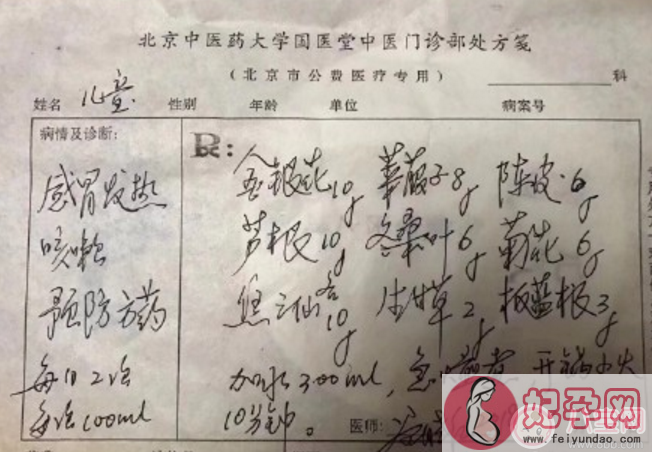 北京中医药大学国医堂中医门诊部处方笺
（北京市公费医疗专用）
科
姓名 儿童 性别 年龄 单位 病案号
病情及诊断：
感冒发热
咳嗽
预防方药
每日2次
每次100ml
R:
金银花10g 莱菔子8g 陈皮6g
芦根10g 冬桑叶6g 菊花6g
焦三仙各10g 生甘草2g 板蓝根3g
加水300ml，煎煮 开锅小火
10分钟。
医师：
妃孕网
www.feiyundao.com